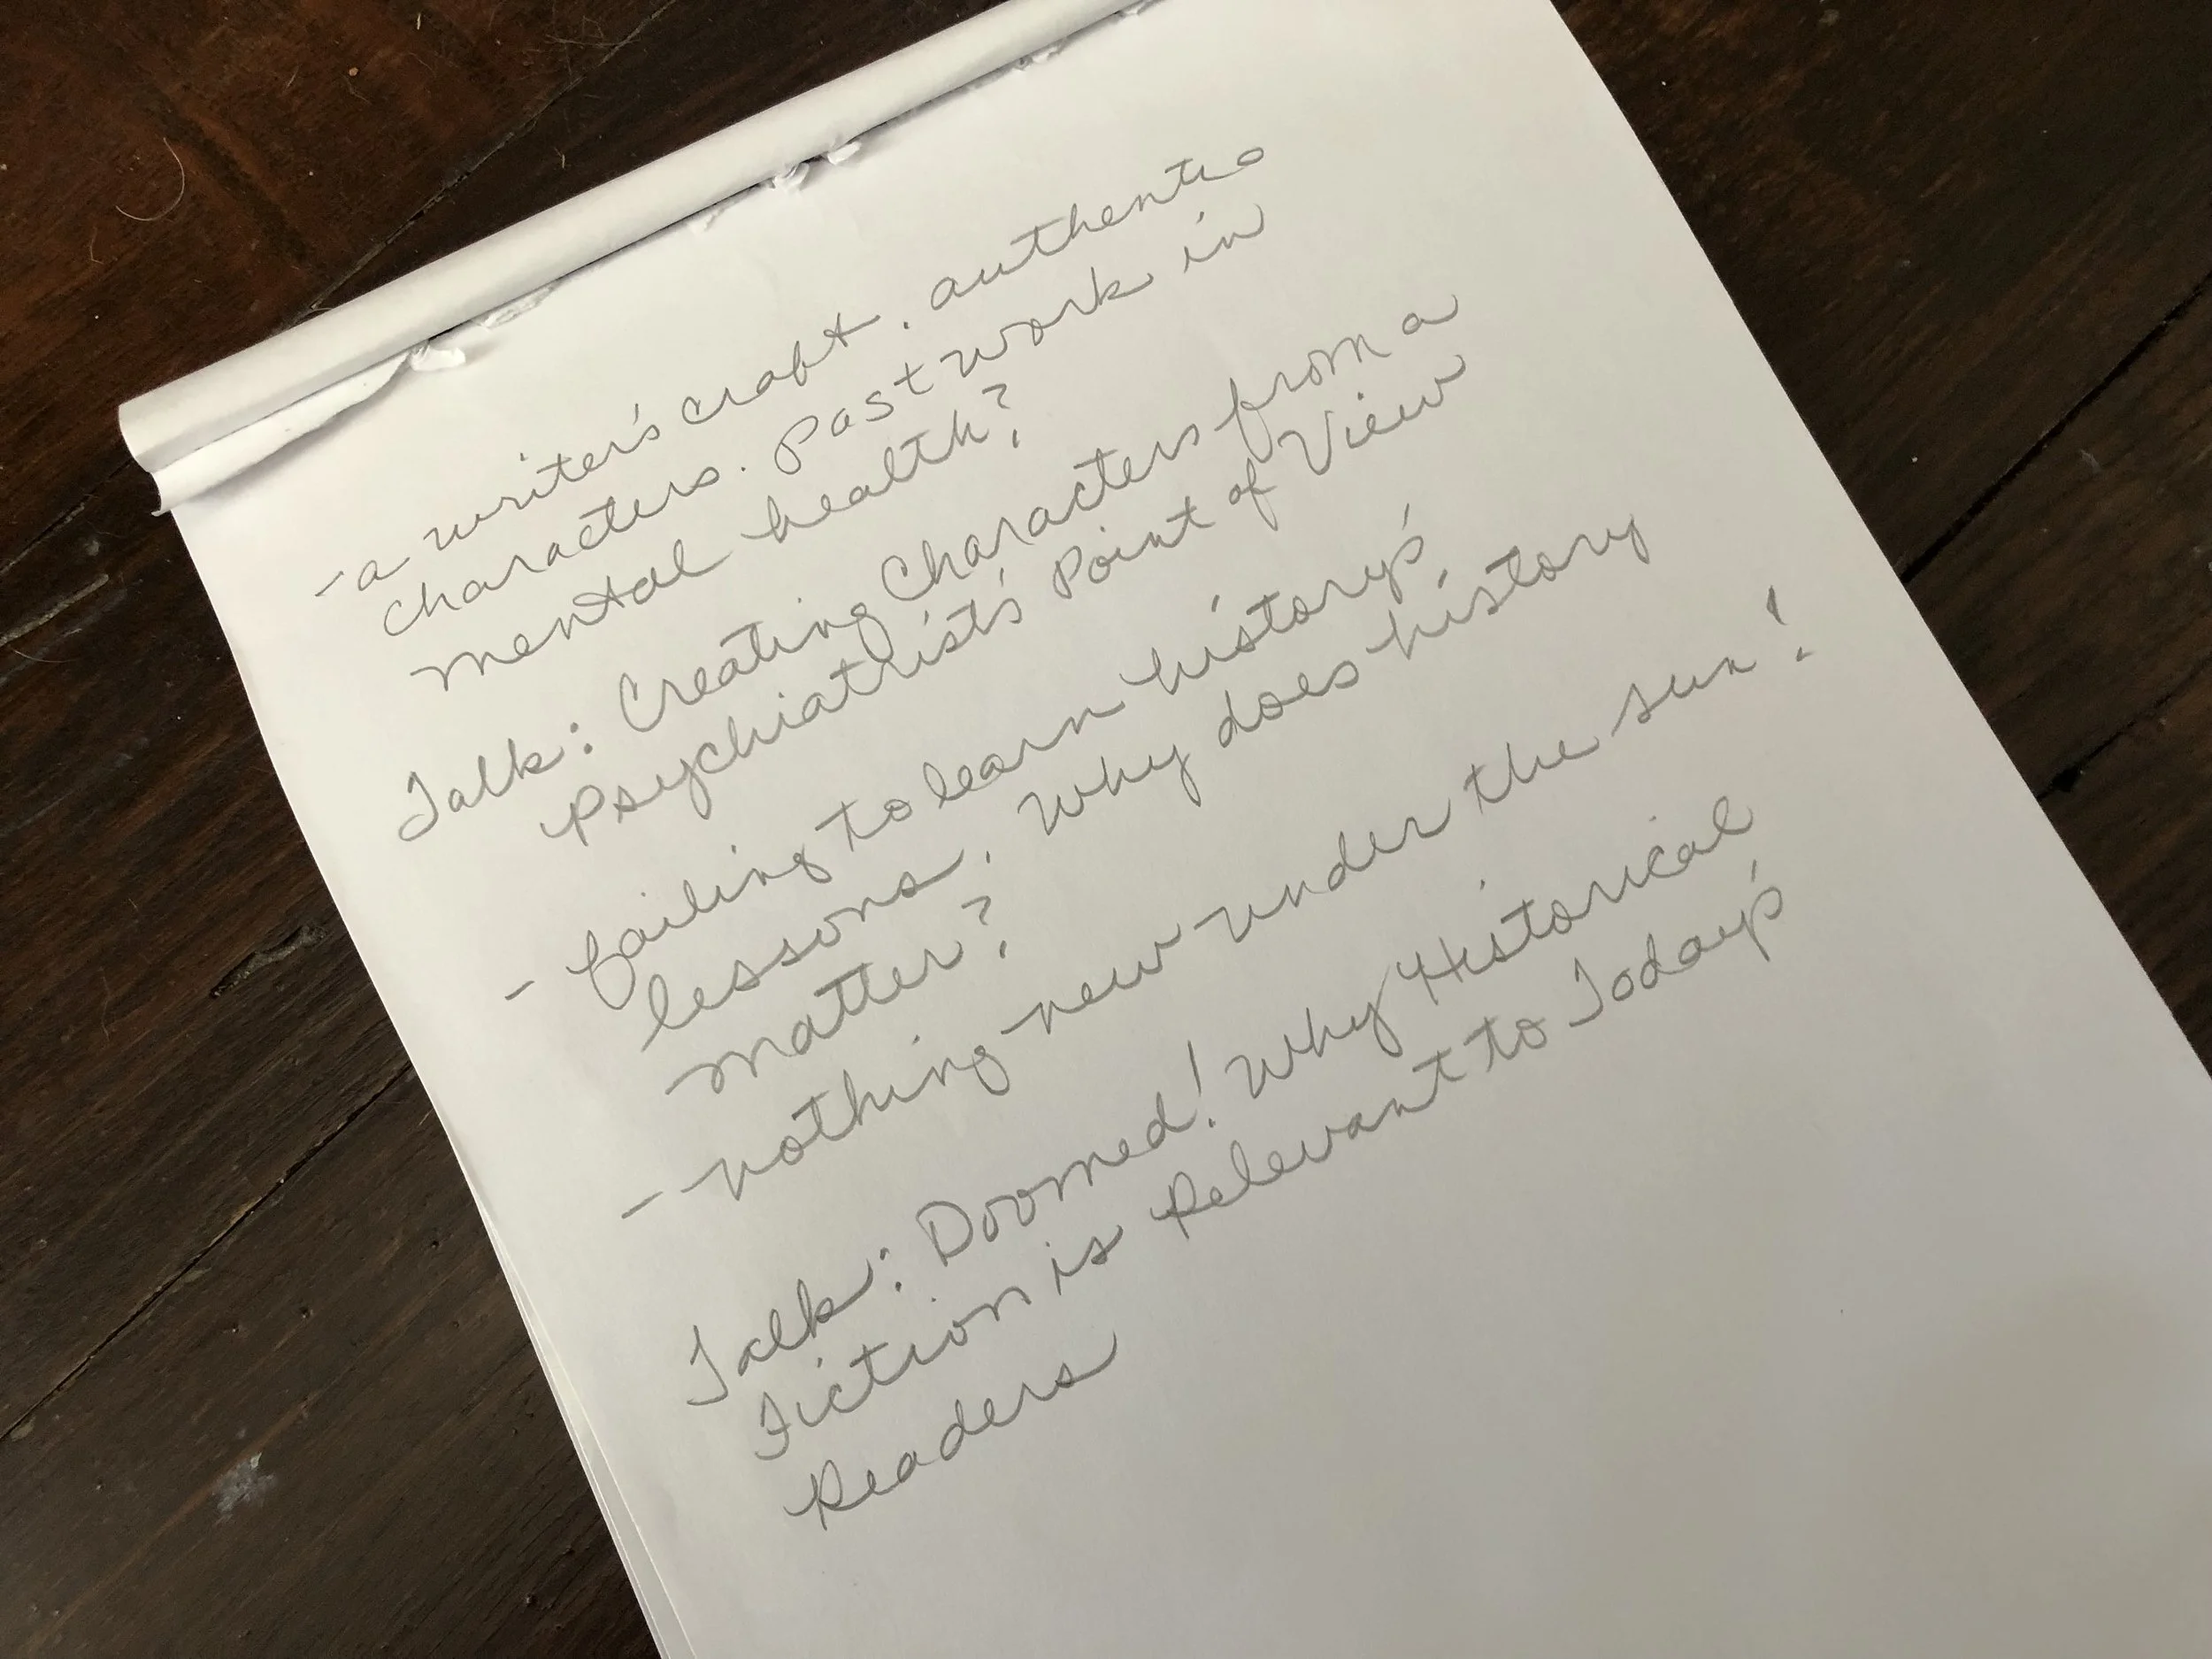 - a writer's craft. authentic
characters. Past work in
mental health?
Talk: Creating Characters from a
Psychiatrist's Point of View
- failing to learn history's
lessons. Why does history
matter?
- nothing new under the sun!
Talk: Doomed! Why Historical
Fiction is Relevant to Today's
Readers